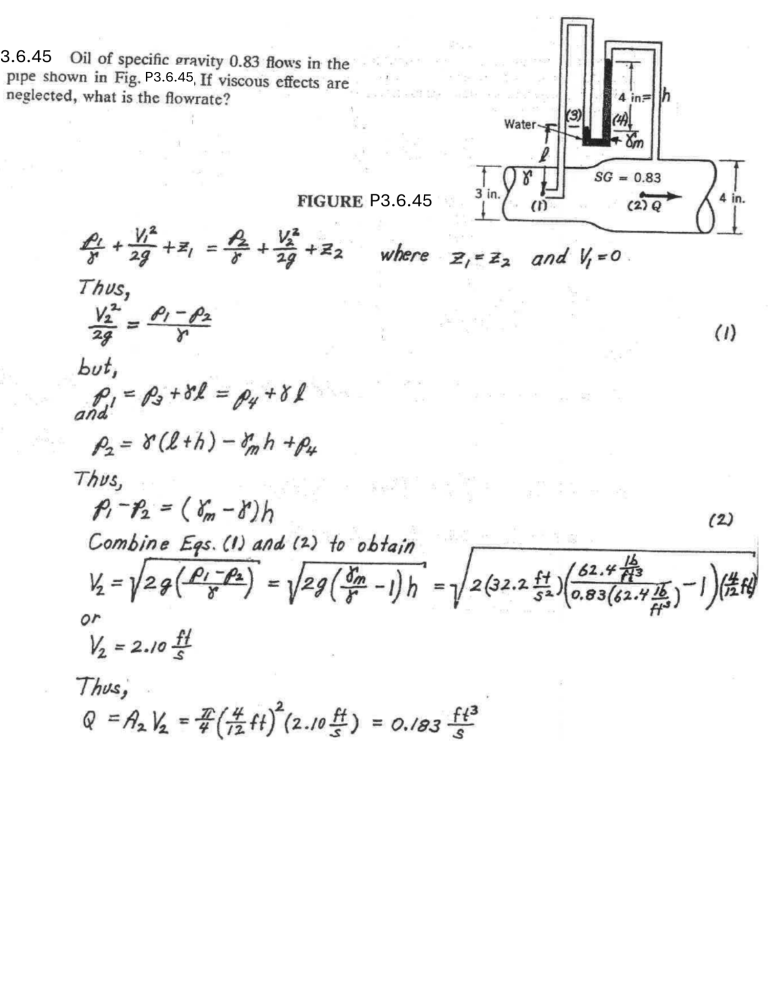 3.6.45 Oil of specific gravity 0.83 flows in the
pipe shown in Fig. P3.6.45, If viscous effects are
neglected, what is the flowrate?
4 in. = h
Water
(3)
(4)
γm
l
γ
SG = 0.83
3 in.
(1)
(2) Q
4 in.
FIGURE P3.6.45
p₁/γ + V₁²/2g + z₁ = p₂/γ + V₂²/2g + z₂ where z₁ = z₂ and V₁ = 0.
Thus,
V₂²/2g = (p₁ - p₂)/γ (1)
but,
p₁ = p₃ + γl = p₄ + γl
and
p₂ = γ(l + h) - γm h + p₄
Thus,
p₁ - p₂ = (γm - γ)h (2)
Combine Eqs. (1) and (2) to obtain
V₂ = √(2g((p₁ - p₂)/γ)) = √(2g(γm/γ - 1)h) = √(2(32.2 ft/s²)(62.4 lb/ft³/0.83(62.4 lb/ft³) - 1)(4/12 ft))
or
V₂ = 2.10 ft/s
Thus,
Q = A₂V₂ = π/4 (4/12 ft)² (2.10 ft/s) = 0.183 ft³/s